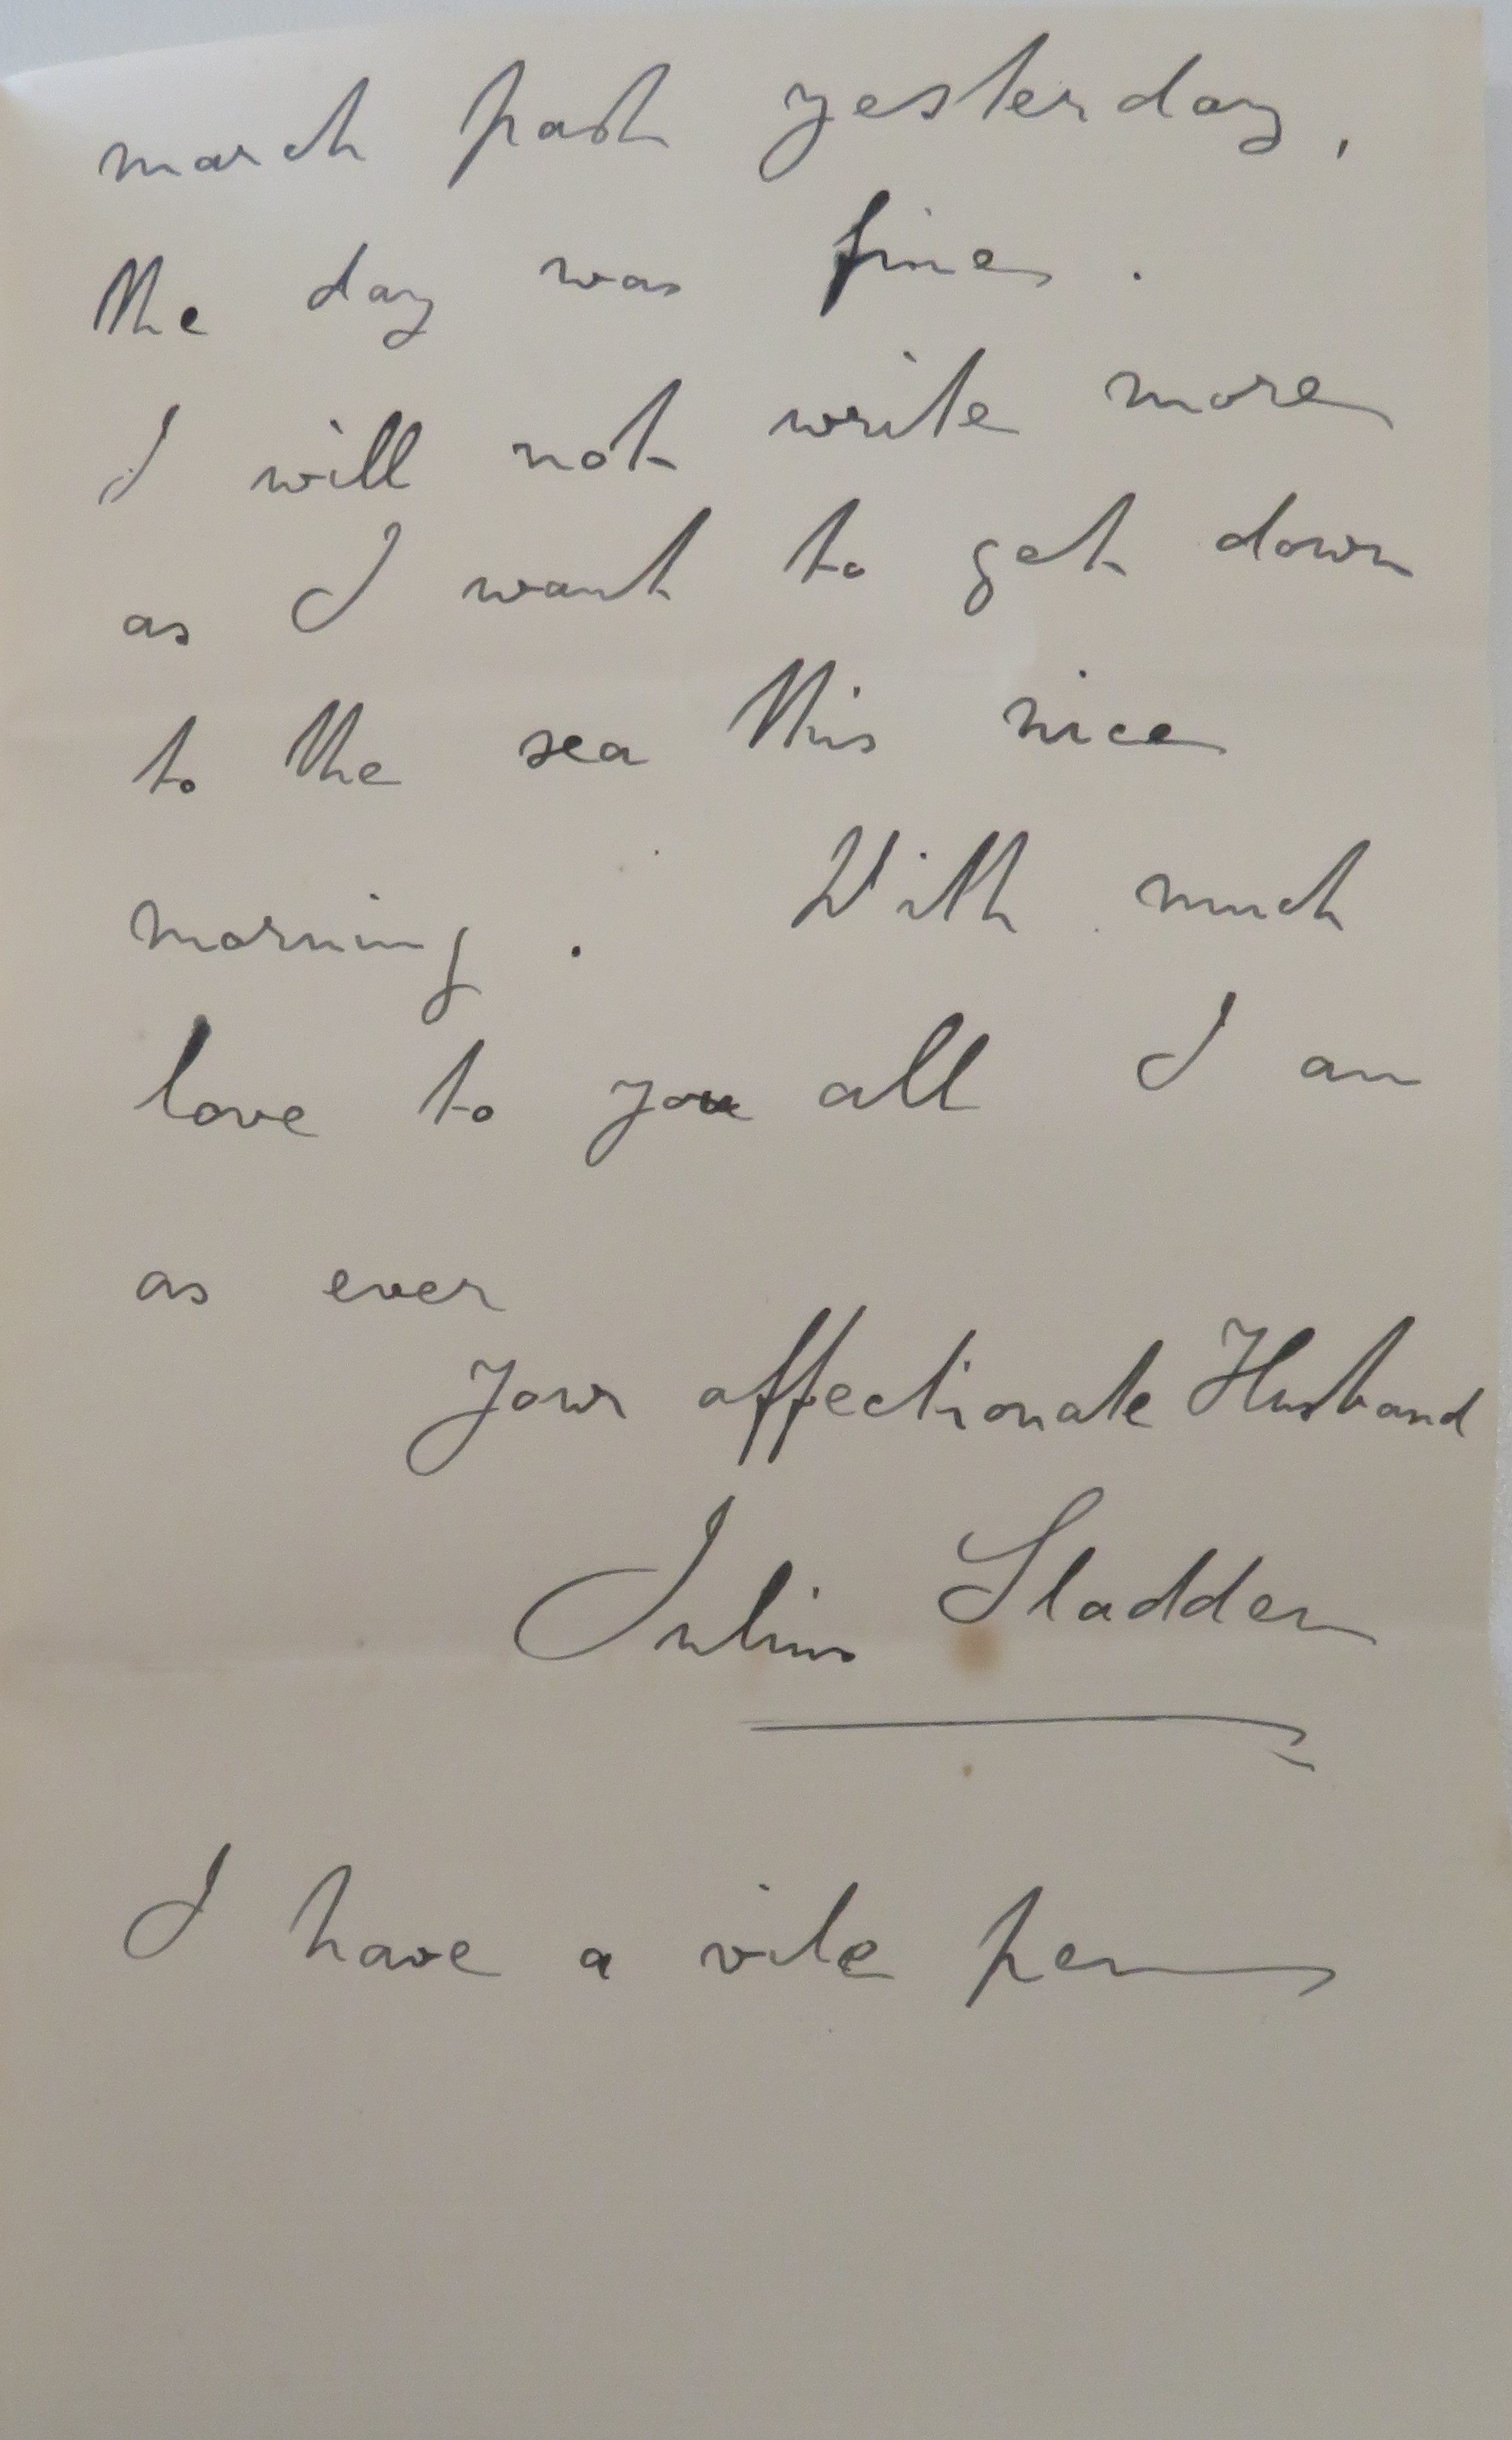 march past yesterday,
the day was fine.
I will not write more
as I want to get down
to the sea this nice
morning. With much
love to you all I am
as ever
Your affectionate Husband
Julius Sladden
I have a vile pen